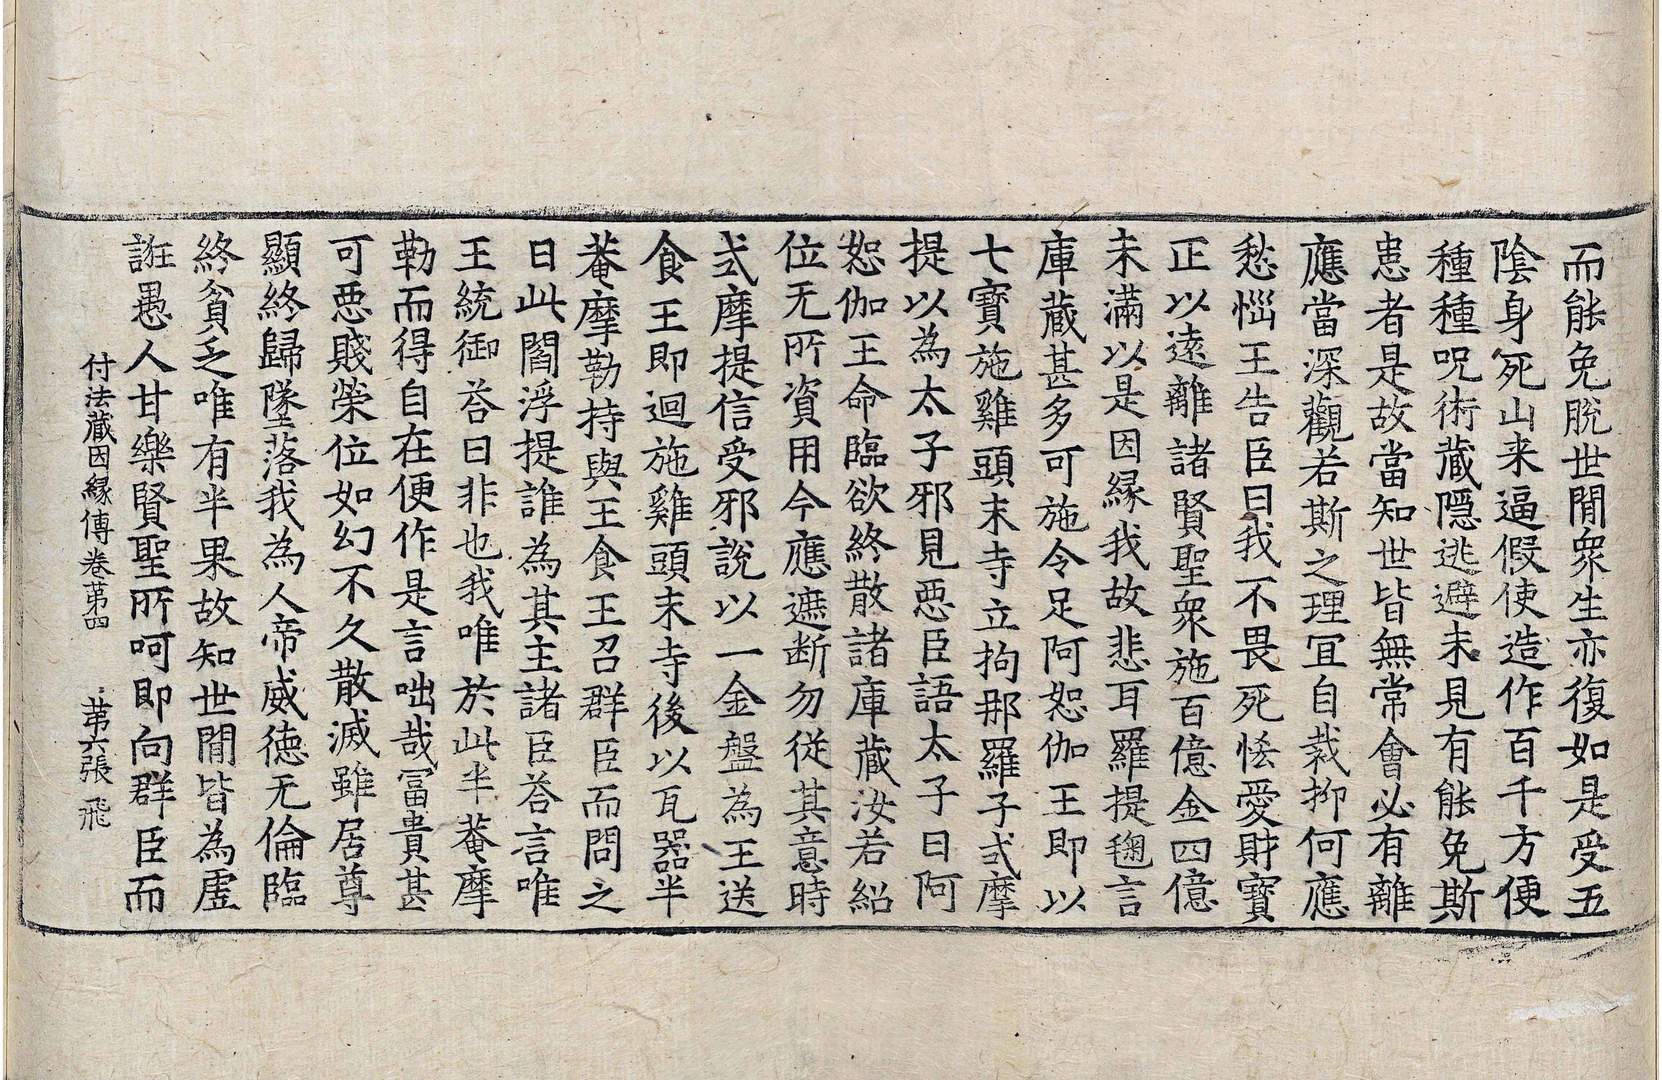 而能免脫世閒衆生亦復如是受五
陰身死山来逼假使造作百千方便
種種呪術蔵隠逃避未見有能免斯
患者是故當知世皆無常會必有離
應當深觀若斯之理冝自裁抑何應
愁惱王告臣曰我不畏死恡愛財寶
正以遠離諸賢聖衆施百億金四億
未滿以是因縁我故悲耳羅提毱言
庫蔵甚多可施令足阿恕伽王即以
七寶施雞頭末寺立拘那羅子式摩
提以為太子邪見惡臣語太子曰阿
恕伽王命臨欲終散諸庫蔵汝若紹
位无所資用今應遮断勿従其意時
式摩提信受邪說以一金盤為王送
食王即迴施雞頭末寺後以瓦器半
菴摩勒持與王食王召群臣而問之
曰此閻浮提誰為其主諸臣荅言唯
王統御荅曰非也我唯於此半菴摩
勒而得自在便作是言咄哉冨貴甚
可惡賤榮位如幻不久散滅雖居尊
顯終歸墜落我為人帝威德无倫臨
終貧乏唯有半果故知世閒皆為虛
誑愚人甘樂賢聖所呵即向群臣而
付法蔵因縁傳卷苐四 苐六張 飛